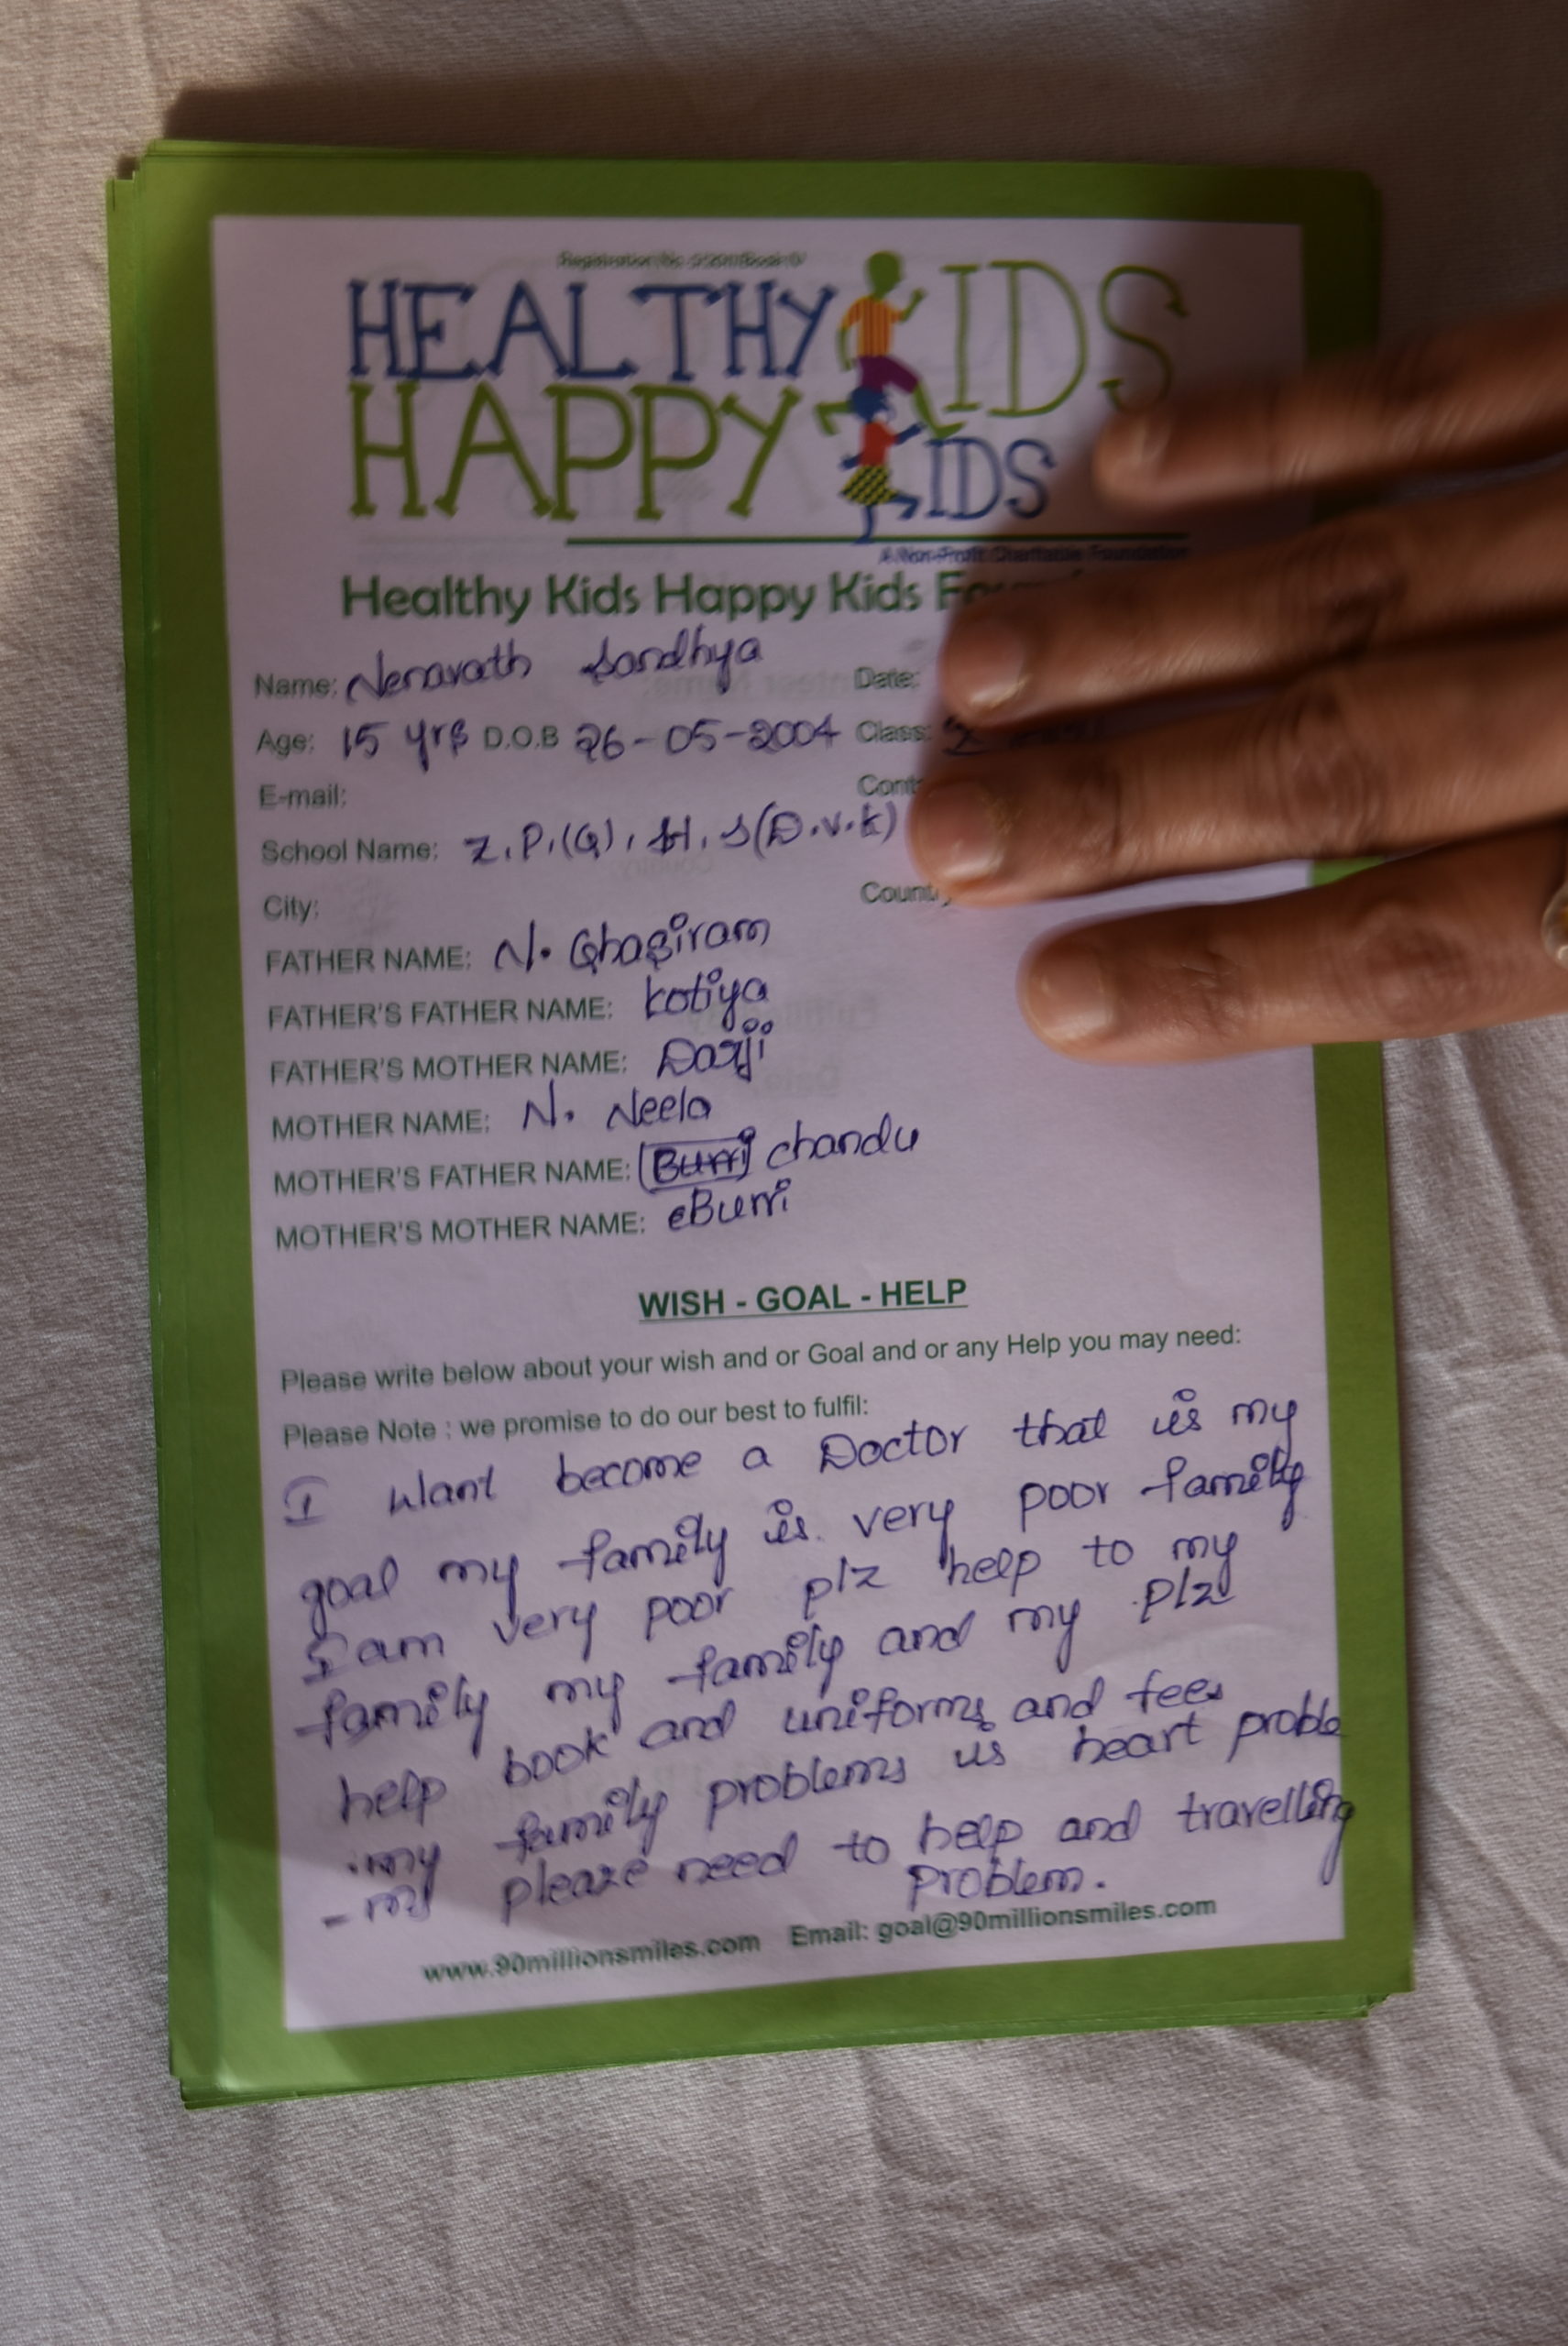 HEALTHY KIDS
HAPPY KIDS
A Non-Profit Charitable Foundation
Healthy Kids Happy Kids
Name: Nenavath Sandhya Date:
Age: 15 yrs D.O.B 26-05-2004 Class:
E-mail:
School Name: Z.P.(G).H.S(D.V.K)
City: Country
FATHER NAME: N. Ghasiram
FATHER'S FATHER NAME: Kotiya
FATHER'S MOTHER NAME: Darji
MOTHER NAME: N. Neela
MOTHER'S FATHER NAME: chandu
MOTHER'S MOTHER NAME: Burri
WISH - GOAL - HELP
Please write below about your wish and or Goal and or any Help you may need:
Please Note : we promise to do our best to fulfil:
I want become a Doctor that is my
goal my family is very poor family
I am very poor plz help to my
family my family and my plz
help book and uniforms and fees
my family problems is heart proble
my please need to help and travelling
problem.
www.90millionsmiles.com Email: goal@90millionsmiles.com